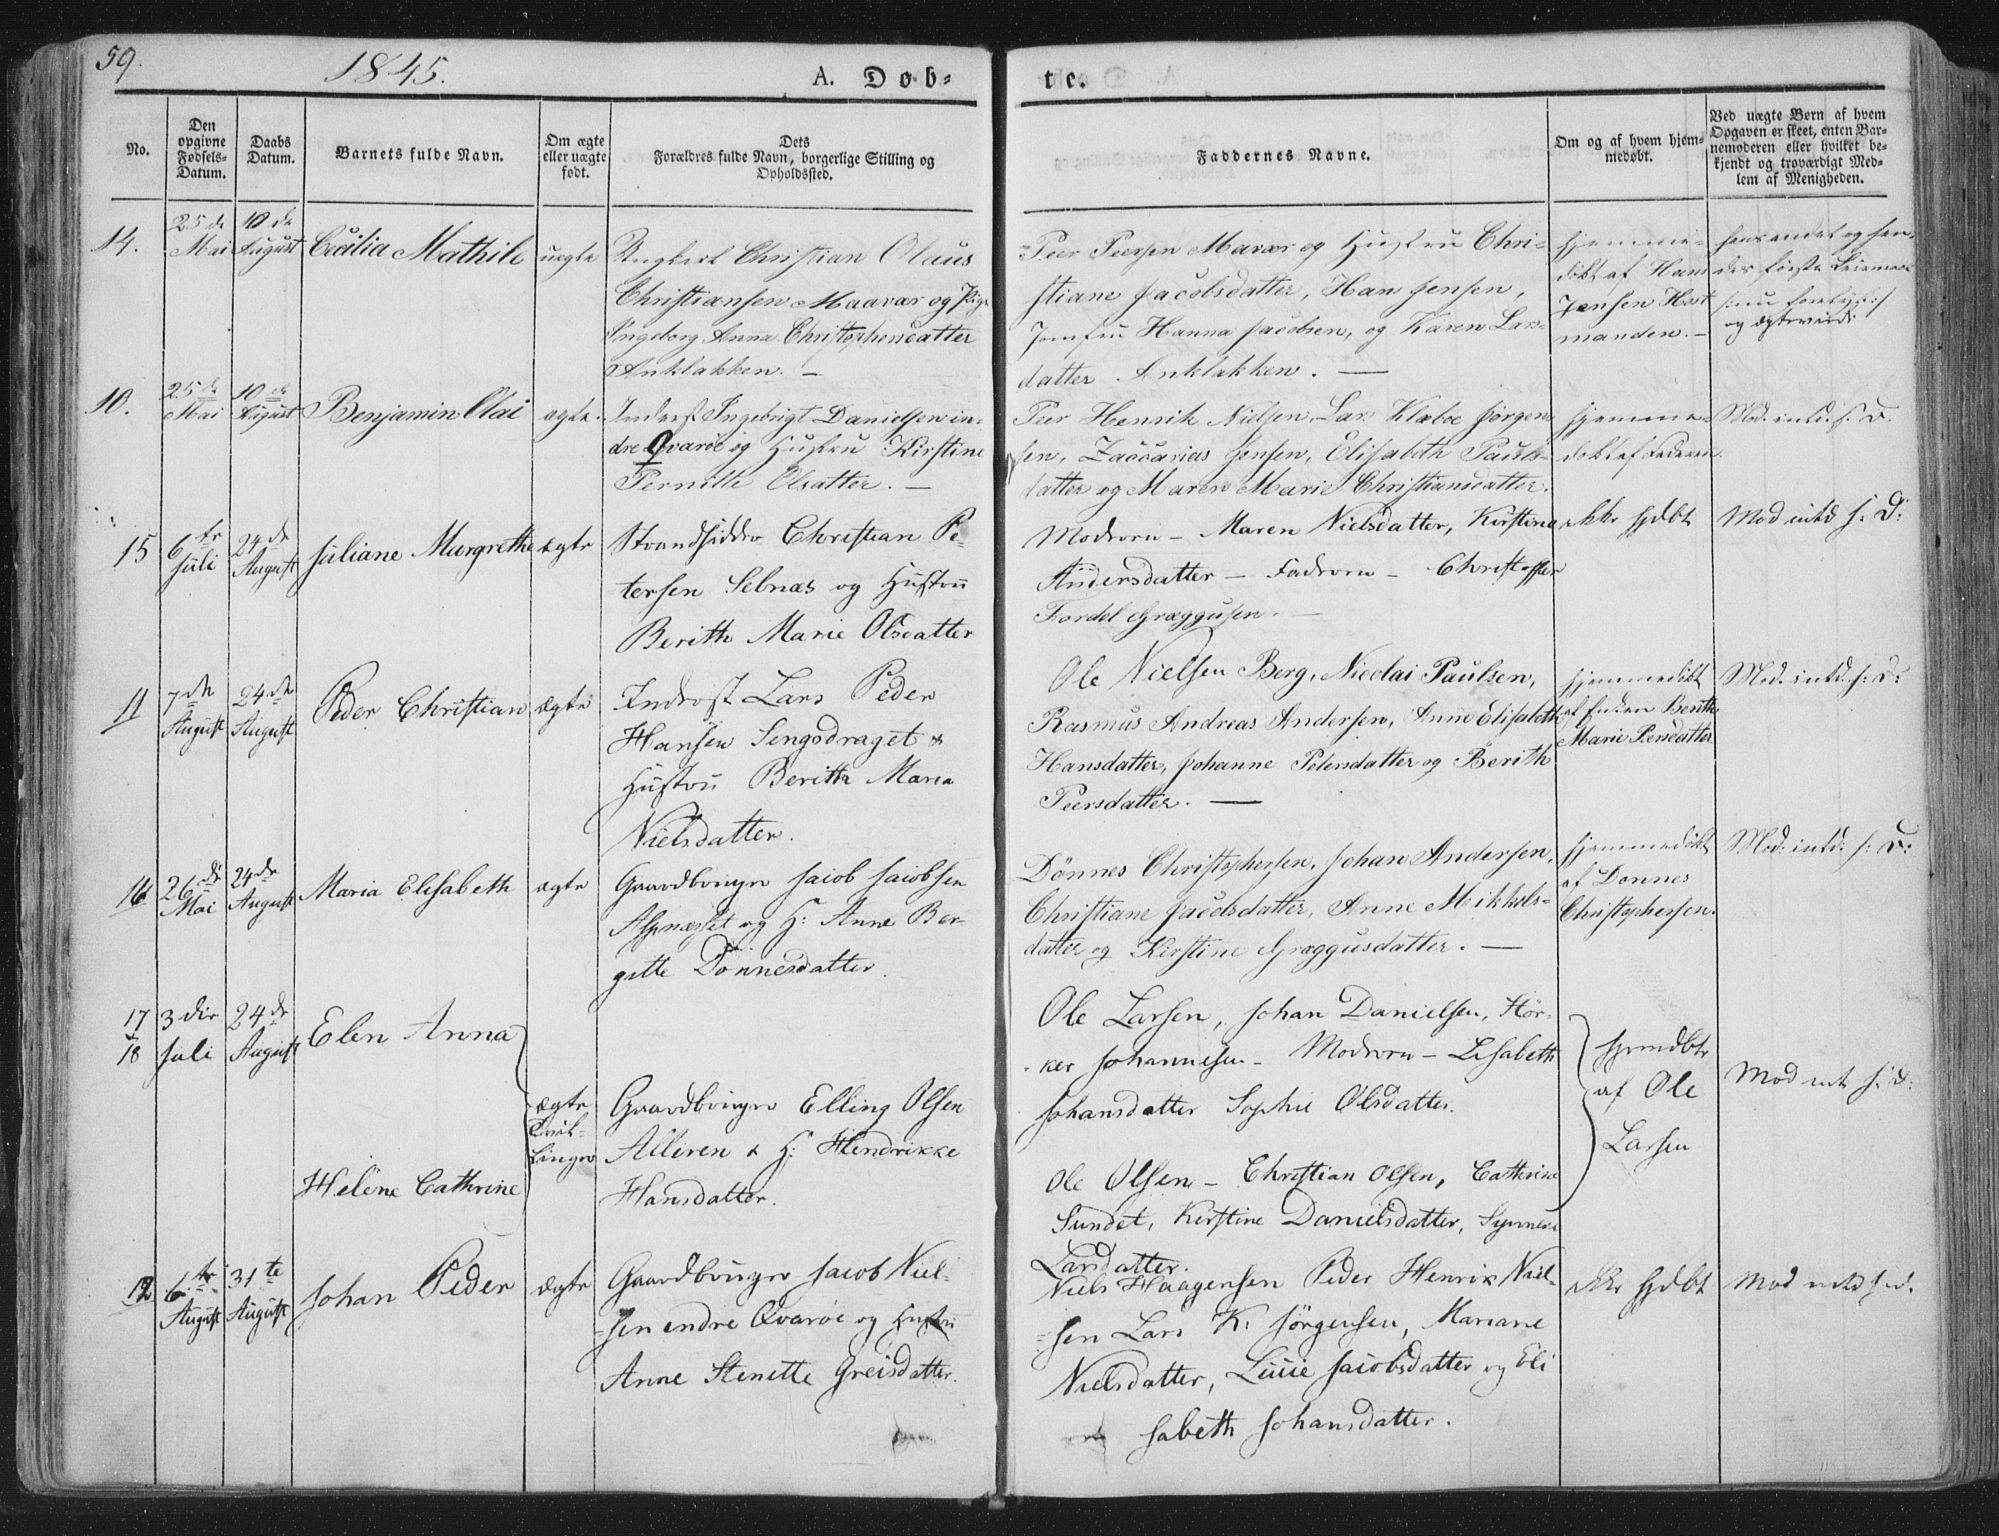 59.
1845.
A. Døb-
te.
No.
Den opgivne Fødsels-Datum.
Daabs Datum.
Barnets fulde Navn.
Om ægte eller uægte født.
Dets
Forældres fulde Navn, borgerlige Stilling og
Opholdssted.
Faddernes Navne.
Om og af hvem hjem-
medøbt.
Ved uægte Børn af hvem
Opgaven er skeet, enten Bar-
nemoderen eller hvilket be-
kjendt og troværdigt Med-
lem af Menigheden.
14.
25de
Mai
10de
August
Cecilia Mathile
uægte
Ungkarl Christian Olaus
Christiansen Maavær og Pige
Ingeborg Anna Christophersdatter
Anklakken. —
Peer Peersen Mavær og Hustru Chri-
stiane Jacobsdatter, Hans Jensen,
Jomfru Hanna Jacobsen, og Karen Lars-
datter Anklakken. —
hjemme-
døbt af Hans
Jensen Hest-
manden. —
10.
25de
Mai
10de
August
Benjamin Olai
ægte.
Inderst Ingebrigt Danielsen in-
dre Qvarøe og Hustru Kirstine
Pernille Olsdatter. —
Peer Henrik Nielsen, Lars Klæboe Jørgen-
sen, Zaccarias Jensen, Elisabeth Pauls-
datter og Maren Marie Christiansdatter.
hjemme-
døbt af Faderen.
Mod. intd. f. D.
15
6te
Juli
24de
August
Juliane Margrethe
ægte
Strandsidder Christian Pe-
tersen Selnæs og Hustru
Berith Marie Olsdatter
Modren — Maren Nielsdatter, Kirstina
Andersdatter — Fadren — Christoffer
Fordel Græggusen. —
ikke hjdbt
Mod intd f: D:
11
7de
August
24de
August
Peder Christian
ægte
Inderst Lars Peder
Hansen Sengsdraget &
Hustru Berithe Maria
Nielsdatter.
Ole Nielsen Berg, Nicolai Paulsen,
Rasmus Andreas Andersen, Anne Elisabeth
Hansdatter, Johanne Petersdatter og Berith
Peersdatter. —
hjemmedøbt
af Enken Berith
Marie Peersdatter
Mod. intd. f: D:
16
26de
Mai
24de
August
Maria Elisabeth
ægte
Gaardbruger Jacob Jacobsen
Aspnæsset og H: Anne Ber-
gitte Dønnesdatter.
Dønnes Christophersen, Johan Andersen,
Christiane Jacobsdatter, Anne Mikkels-
datter og Kirstine Græggusdatter. —
hjemmedøbt
af Dønnes
Christophersen.
Mod: intd: f: D:
17
&
18
3die
Juli
24de
August
Elen Anna
Helene Cathrine
ægte
Tvil-
linger
Gaardbruger Elling Olsen
Alderen & H: Hendrikke
Hansdatter.
Ole Larsen, Johan Danielsen, Hör-
ker Johannesen — Modren — Lisabeth
Johansdatter Sophie Olsdatter.
Ole Olsen — Christian Olsen, Catherine
Sundet, Kirstine Danielsdatter, Synneve
Larsdatter.
hjemdbt
af Ole
Larsen
Mod int f: D:
12
6te
August
31te
August
Johan Peder
ægte
Gaardbruger Jacob Niel-
sen endre Qvarøe og Hustru
Anne Stenette Greisdatter.
Niels Haagensen Peder Henrik Niel-
sen Lars K: Jørgensen, Mariane
Nielsdatter, Lucie Jacobsdatter og Eli
sabeth Johansdatter.
ikke hjdbt
Mod intd f. d.